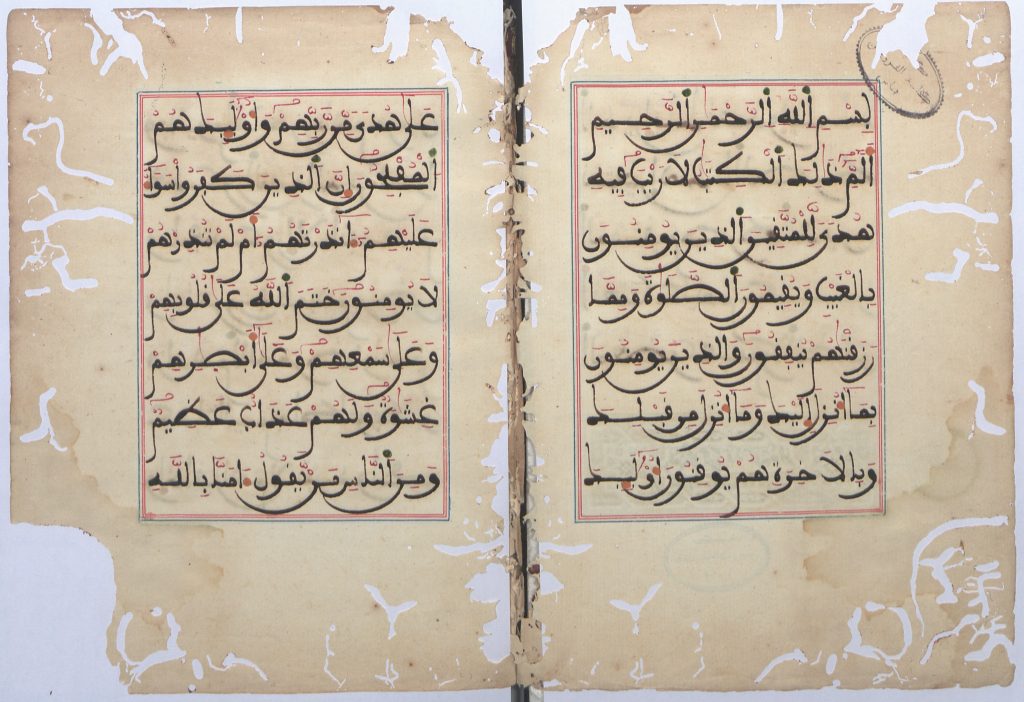 بِسْمِ اِللَّهِ اِلرَّحْمَٰنِ اِلرَّحِيمِ
أَلَٓمِّٓ ذَٰلِكَ اَلْكِتَٰبُ لَا رَيْبَ فِيهِ
هُدىً لِّلْمُتَّقِينَ اَلذِينَ يُومِنُونَ
بِالْغَيْبِ وَيُقِيمُونَ اَلصَّلَوٰةَ وَمِمَّا
رَزَقْنَٰهُمْ يُنفِقُونَ وَالذِينَ يُومِنُونَ
بِمَآ أُنزِلَ إِلَيْكَ وَمَآ أُنزِلَ مِن قَبْلِكَ
وَبِالَاخِرَةِ هُمْ يُوقِنُونَ أُوْلَٰٓئِكَ
عَلَىٰ هُدىً مِّن رَّبِّهِمْ وَأُوْلَٰٓئِكَ هُمُ
اُلْمُفْلِحُونَ إِنَّ اَلذِينَ كَفَرُواْ سَوَآءٌ
عَلَيْهِمُۥٓ ءَآنذَرْتَهُمُۥٓ أَمْ لَمْ تُنذِرْهُمْ
لَا يُومِنُونَ خَتَمَ اَللَّهُ عَلَىٰ قُلُوبِهِمْ
وَعَلَىٰ سَمْعِهِمْ وَعَلَىٰٓ أَبْصَٰرِهِمْ
غِشَٰوَةٌ وَلَهُمْ عَذَابٌ عَظِيمٌ
وَمِنَ اَلنَّاسِ مَن يَّقُولُ ءَامَنَّا بِاللَّهِ